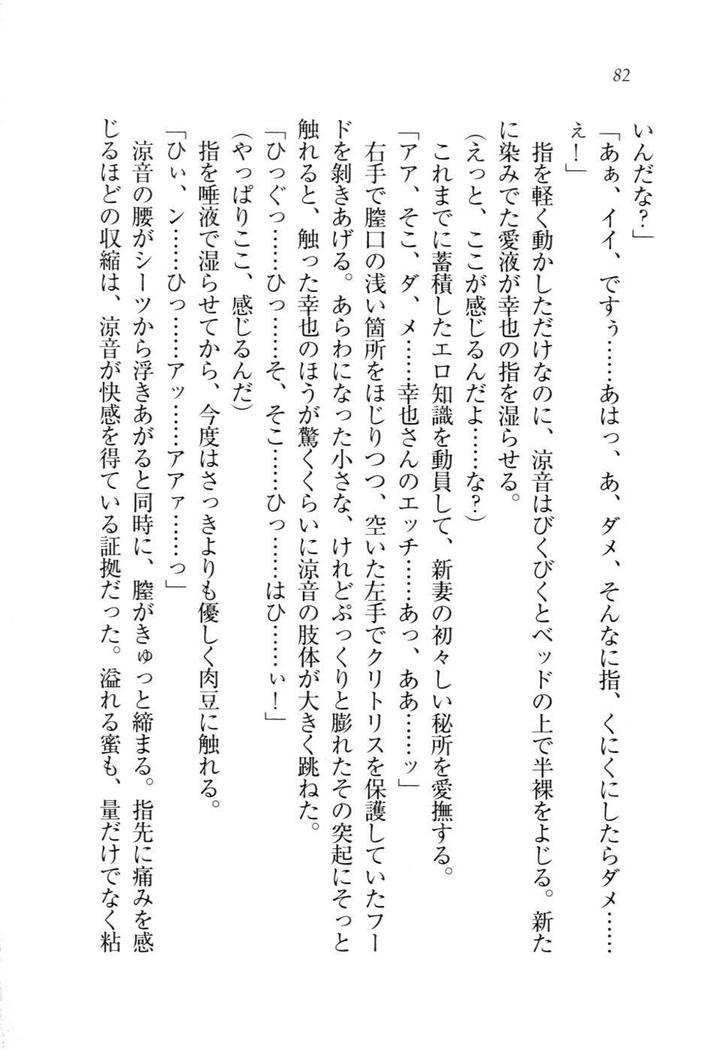 82
いんだな?」
「あぁ、イイ、ですぅ……あはっ、あ、ダメ、そんなに指、くにくにしたらダメ……
ぇ!」
指を軽く動かしただけなのに、涼音はびくびくとベッドの上で半裸をよじる。新た
に染みでた愛液が幸也の指を湿らせる。
(えっと、ここが感じるんだよ……な?)
これまでに蓄積したエロ知識を動員して、新妻の初々しい秘所を愛撫する。
「アア、そこ、ダ、メ……幸也さんのエッチ……あっ、ああ……ッ」
右手で膣口の浅い箇所をほじりつつ、空いた左手でクリトリスを保護していたフー
ドを剝きあげる。あらわになった小さな、けれどぷっくりと膨れたその突起にそっと
触れると、触った幸也のほうが驚くくらいに涼音の肢体が大きく跳ねた。
「ひっぐっ……ひっ……そ、そこ……ひっ……はひ……ぃ!」
(やっぱりここ、感じるんだ)
指を唾液で湿らせてから、今度はさっきよりも優しく肉豆に触れる。
「ひぃ、ン……ひっ……アッ……アアァ……っ」
涼音の腰がシーツから浮きあがると同時に、膣がきゅっと締まる。指先に痛みを感
じるほどの収縮は、涼音が快感を得ている証拠だった。溢れる蜜も、量だけでなく粘